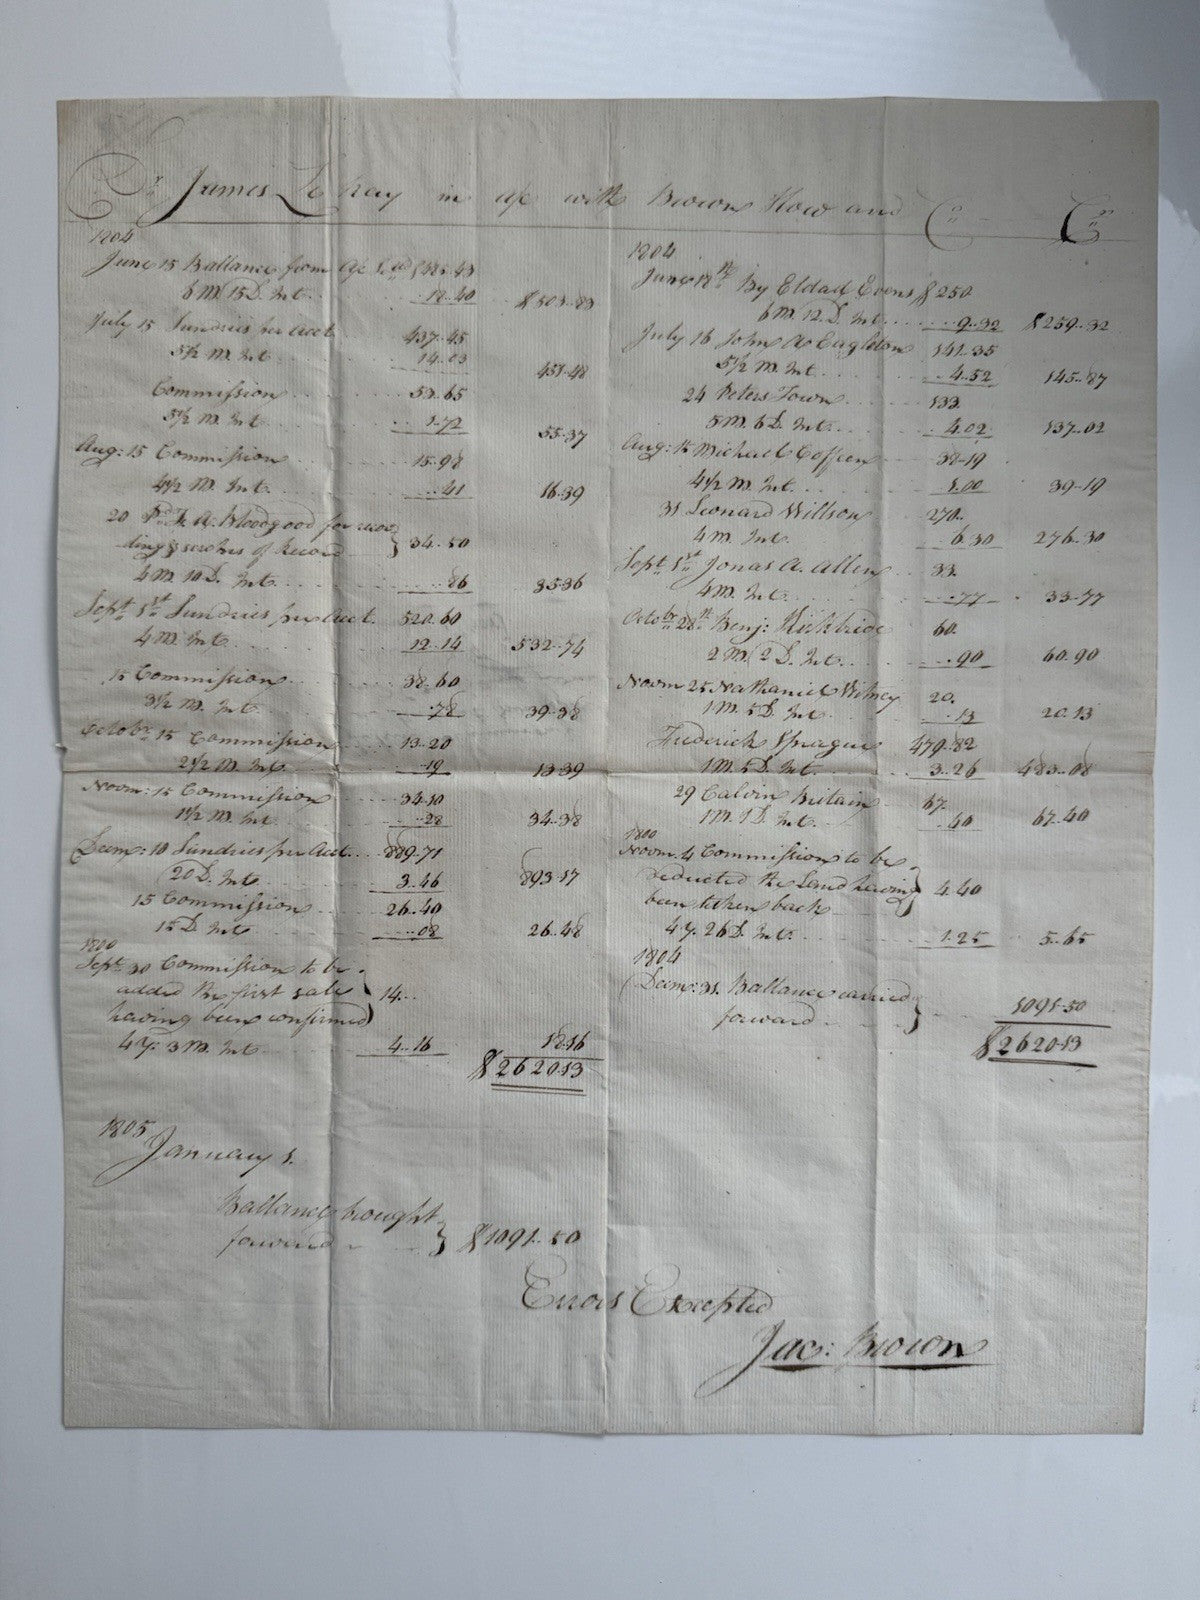 Dr. James Le Ray in a/c with Brown How and Co. Cr.
1804
June 15 Ballance from a/c $485.43
6 M. 15 D. Int. 18.40 $503.83
July 15 Sundries per acct 437.45
5½ M. Int 14.03 451.48
Commission 53.65
5½ M. Int. 1.72 55.37
Aug: 15 Commission 15.98
4½ M. Int. .41 16.39
20 Pd. A. Bloodgood for recor
ding & serches of Record } 34.50
4 M. 10 D. Int. .86 35.36
Sept. 1st Sundries per Acct. 520.60
4 M. Int. 12.14 532.74
15 Commission 38.60
3½ M. Int. .78 39.38
Octobr. 15 Commission 13.20
2½ M. Int. .19 13.39
Novm: 15 Commission 34.10
1½ M. Int. .28 34.38
Decm: 10 Sundries per Acct. 889.71
20 D. Int. 3.46 893.17
15 Commission 26.40
15 D. Int. .08 26.48
1800
Sept. 30 Commission to be
added the first sale
having been confirmed } 14..
4 Y. 3 M. Int. 4.16 18.16
$2620.13
1805
January 1.
Ballance brought
forward } $1091.50
1804
June 18th By Eldad Evens $250
6 M. 12 D. Int. 9.32 $259.32
July 16 John A. Eagleton 141.35
5½ M. Int. 4.52 145.87
24 Peters Town 133.
5 M. 6 D. Int. 4.02 137.02
Aug: 15 Michael Coffeen 38.19
4½ M. Int. 1.00 39.19
31 Leonard Willson 270.
4 M. Int. 6.30 276.30
Sept. 1st Jonas A. Allen 33.
4 M. Int. .77 33.77
Octobr. 28th Benj: Kirkbride 60.
2 M. 2 D. Int. .90 60.90
Novm 25 Nathaniel Witney 20.
1 M. 5 D. Int. .13 20.13
Frederick Sprague 479.82
1 M. 5 D. Int. 3.26 483.08
29 Calvin Britain 67.
1 M. 1 D. Int. .40 67.40
1800
Novm. 4 Commission to be
deducted the Land having
been taken back } 4.40
4 Y. 26 D. Int. 1.25 5.65
1804
Decm: 31. Ballance carried
forward } 1091.50
$2620.13
Errors Excepted
Jac: Brown